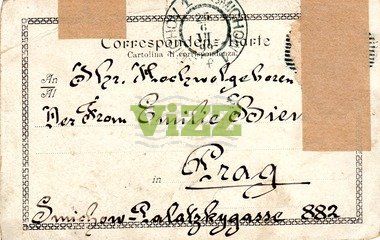 Correspondenz-Karte
Cartolina di corrispondenza
An Ihr. Hochwolgeboren
Al
Der Frau Emilie Bien
ViZZ
in Prag
Smichow-Palatzkygasse 882